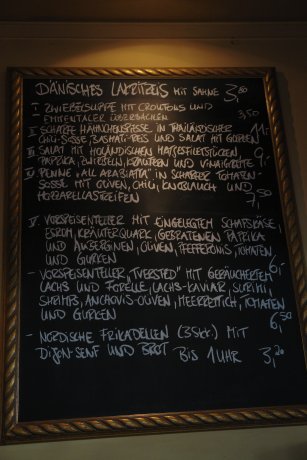 DÄNISCHES LAKRITZEIS MIT SAHNE 3,80
I ZWIEBELSUPPE MIT CROUTONS UND
EMMENTALER ÜBERBACKEN 3,50
II SCHARFE HÄHNCHENSPIESSE IN THAILÄNDISCHER
CHILI-SOSSE, BASMATI-REIS UND SALAT MIT GURKEN 11,-
III SALAT MIT HOLLÄNDISCHEN MATJESFILETSTÜCKEN
PAPRIKA, ZWIEBELN, KRÄUTERN UND VINAIGRETTE 9,-
IV PENNE "ALL ARABIATA" IN SCHARFER TOMATEN-
SOSSE MIT OLIVEN, CHILI, KNOBLAUCH UND
MOZZARELLASTREIFEN 7,50
V. VORSPEISENTELLER MIT EINGELEGTEM SCHAFSKÄSE,
ESROM, KRÄUTERQUARK, GEBRATENEN PAPRIKA
UND AUBERGINEN, OLIVEN, PFEFFERONIS, TOMATEN
UND GURKEN 6,-
- VORSPEISENTELLER "TVERSTED" MIT GERÄUCHERTEM
LACHS UND FORELLE, LACHS-KAVIAR, SURIMI,
SHRIMPS, ANCHOVIS-OLIVEN, MEERRETTICH, TOMATEN
UND GURKEN 6,50
- NORDISCHE FRIKADELLEN (3STCK.) MIT
DIJON-SENF UND BROT BIS 1 UHR 3,20